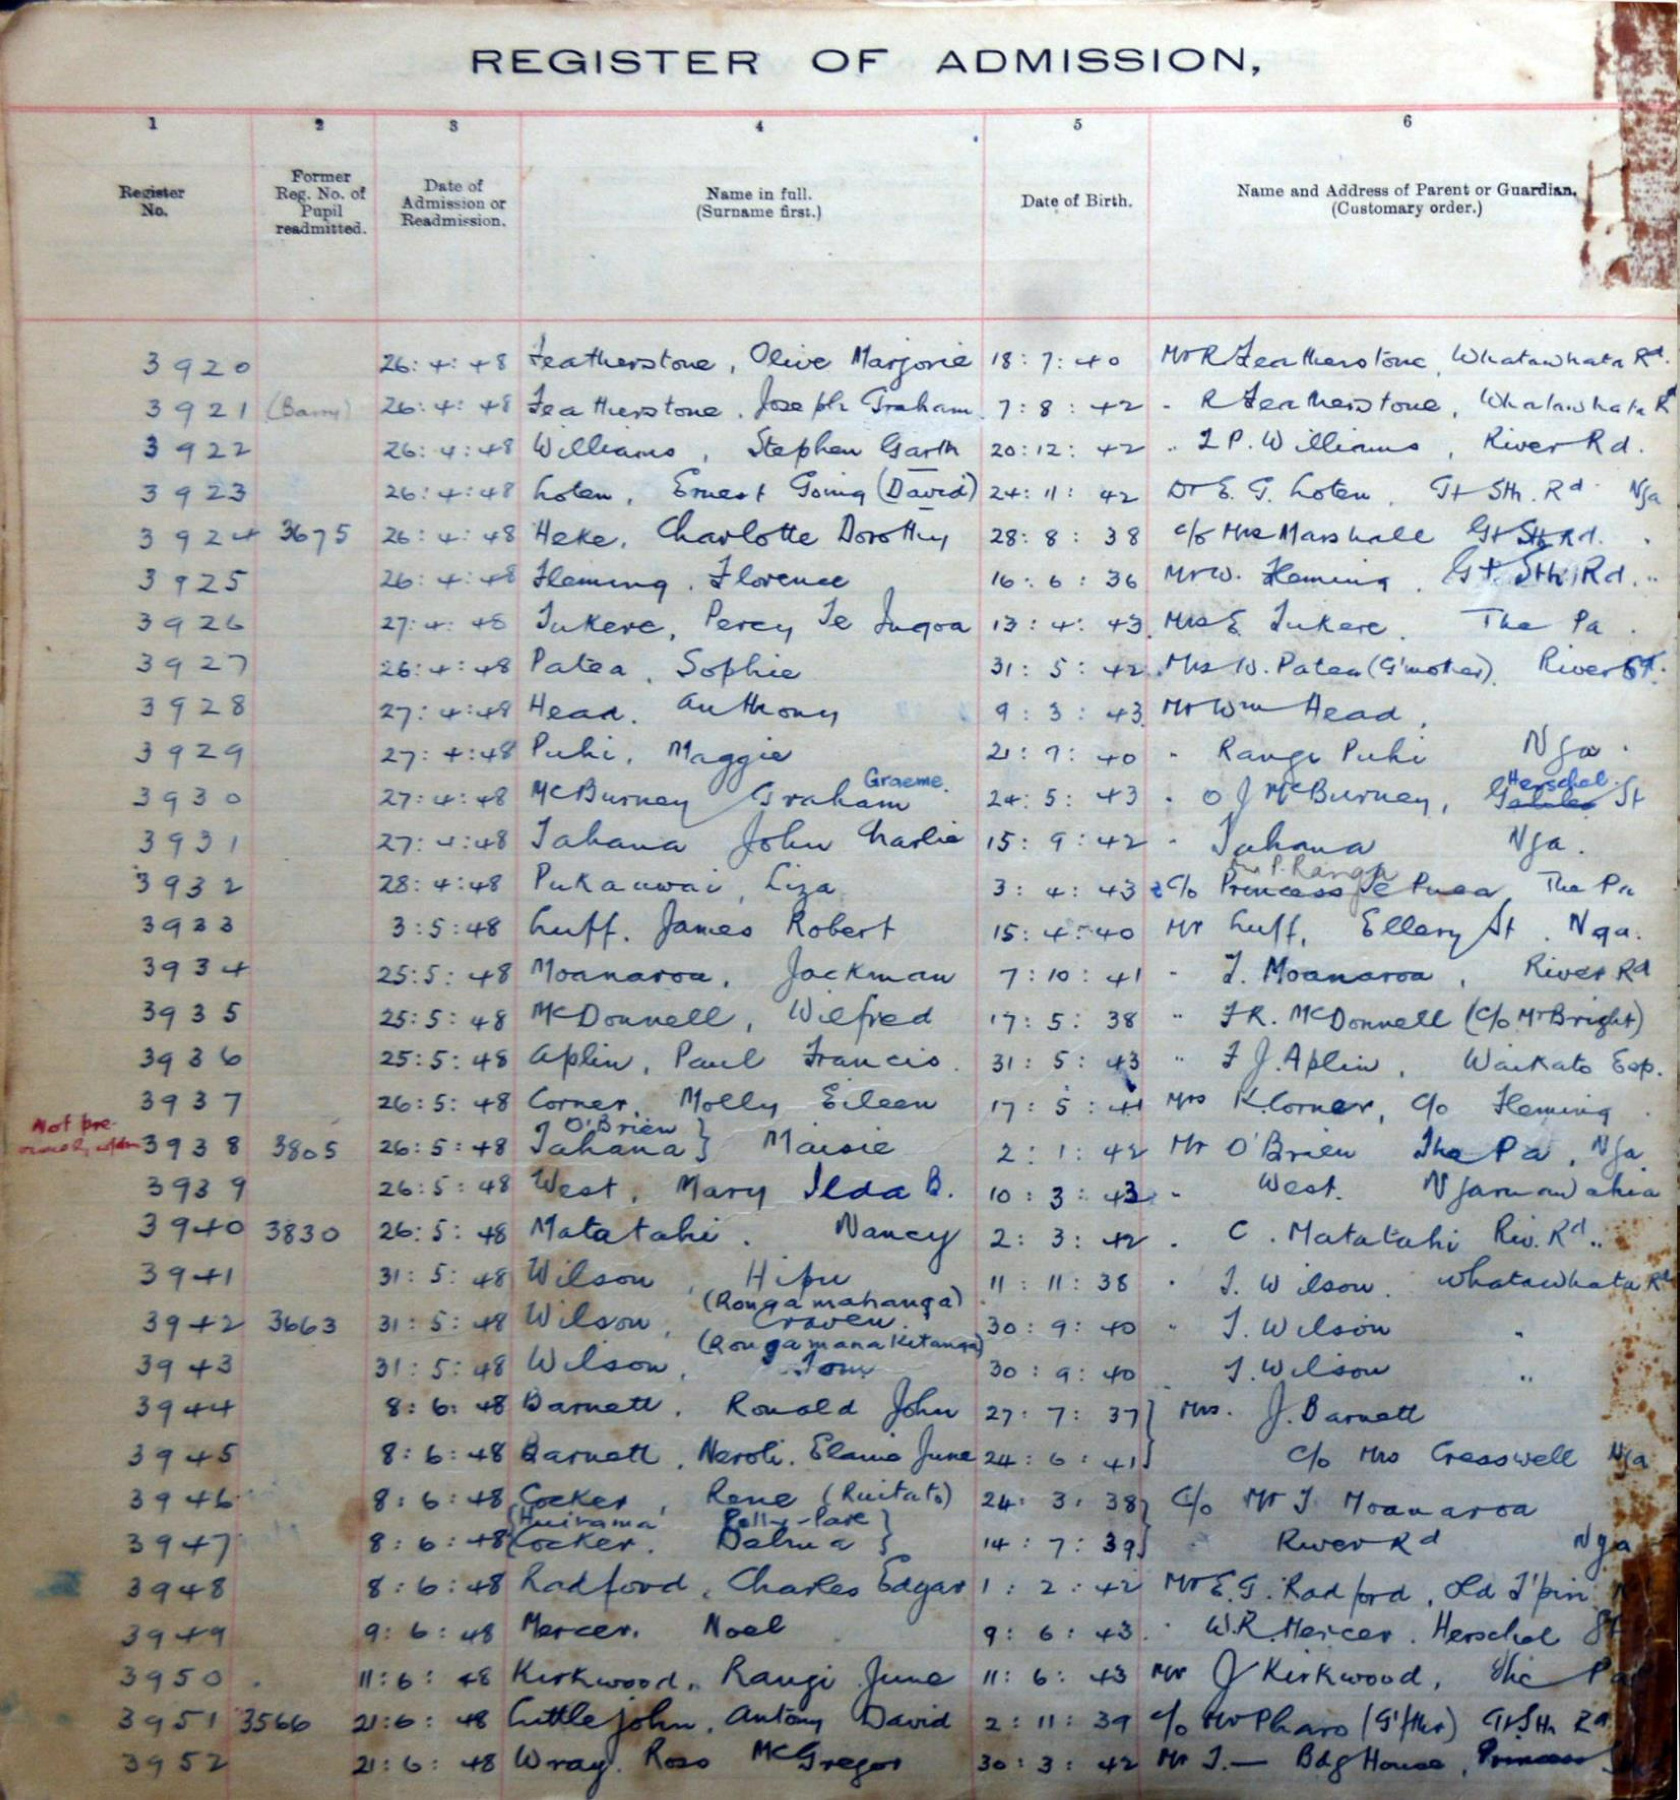 REGISTER OF ADMISSION,
1 2 3 4 5 6
Register No. Former Reg. No. of Pupil readmitted. Date of Admission or Readmission. Name in full. (Surname first.) Date of Birth. Name and Address of Parent or Guardian. (Customary order.)
3920 26:4:48 Featherstone, Olive Marjorie 18:7:40 Mr R Featherstone, Whatawhata Rd.
3921 (Barry) 26:4:48 Featherstone, Joseph Graham 7:8:42 " R Featherstone, Whatawhata R
3922 26:4:48 Williams, Stephen Garth 20:12:42 " L P. Williams, River Rd.
3923 26:4:48 Loten, Ernest Going (David) 24:11:42 Dr E. G. Loten, Gt Sth. Rd Nga
3924 3675 26:4:48 Heke, Charlotte Dorothy 28:8:38 c/o Mrs Marshall Gt Sth Rd. "
3925 26:4:48 Fleming, Florence 16:6:36 Mr W. Fleming, Gt Sth Rd. "
3926 27:4:48 Tukere, Percy Te 13:4:43 Mrs E Tukere. The Pa.
3927 26:4:48 Patea, Sophie 31:5:42 Mrs W. Patea (G'mother). River
3928 27:4:48 Head, Anthony 9:3:43 Mr Wm Head.
3929 27:4:48 Puhi, Maggie 21:7:40 " Rangi Puhi Nga.
Graeme. Herschel
3930 27:4:48 McBurney Graham 24:5:43 " O J McBurney, Galileo St
3931 27:4:48 Tahana John Charlie 15:9:42 " Tahana Nga.
P. Ranga
3932 28:4:48 Pukauwai, Liza 3:4:43 c/o Princess Te Puea, The Pa
3933 3:5:48 Luff, James Robert 15:4:40 Mr Luff, Ellery St. Nga.
3934 25:5:48 Moanaroa, Jackman 7:10:41 " T. Moanaroa, River Rd
3935 25:5:48 McDonnell, Wilfred 17:5:38 " F R. McDonnell (c/o Mr Bright)
3936 25:5:48 Aplin, Paul Francis 31:5:43 " F J. Aplin, Waikato Esp.
3937 26:5:48 Corner, Molly Eileen 17:5:41 Mrs K. Corner, c/o Fleming
Not pre- O'Brien }
3938 3805 26:5:48 Tahana } Maisie 2:1:42 Mr O'Brien The Pa, Nga
3939 26:5:48 West, Mary Ilda B. 10:3:43 " West. Ngaruawahia
3940 3830 26:5:48 Matatahi, Nancy 2:3:42 " C. Matatahi Riv. Rd..
3941 31:5:48 Wilson, Hipu 11:11:38 " T. Wilson. Whatawhata Rd
(Rongamahanga)
3942 3663 31:5:48 Wilson, Craven. 30:9:40 " T. Wilson "
(Rongamanakitanga)
3943 31:5:48 Wilson, Tom 30:9:40 T. Wilson "
3944 8:6:48 Barnett, Ronald John 27:7:37 } Mrs. J. Barnett
3945 8:6:48 Barnett, Neroli, Elaine June 24:6:41 } c/o Mrs Cresswell Nga
3946 8:6:48 Cocker, Rene (Ruitato) 24:3:38 } c/o Mr T Moanaroa
(Huirama Polly-Pare }
3947 8:6:48 (Cocker. Delma } 14:7:39 } River Rd Nga
3948 8:6:48 Radford, Charles Edgar 1:2:42 Mr E. G. Radford, Old T'piri
3949 9:6:48 Mercer, Noel 9:6:43 " W.R. Mercer. Herschel St
3950 11:6:48 Kirkwood, Rangi June 11:6:43 Mr J Kirkwood, The Pa
3951 3566 21:6:48 Littlejohn, Antony David 2:11:39 c/o Mr Pharo (G'fthr) Gt Sth Rd
3952 21:6:48 Wray, Ross McGregor 30:3:42 Mr T.— Bdg House, Princess